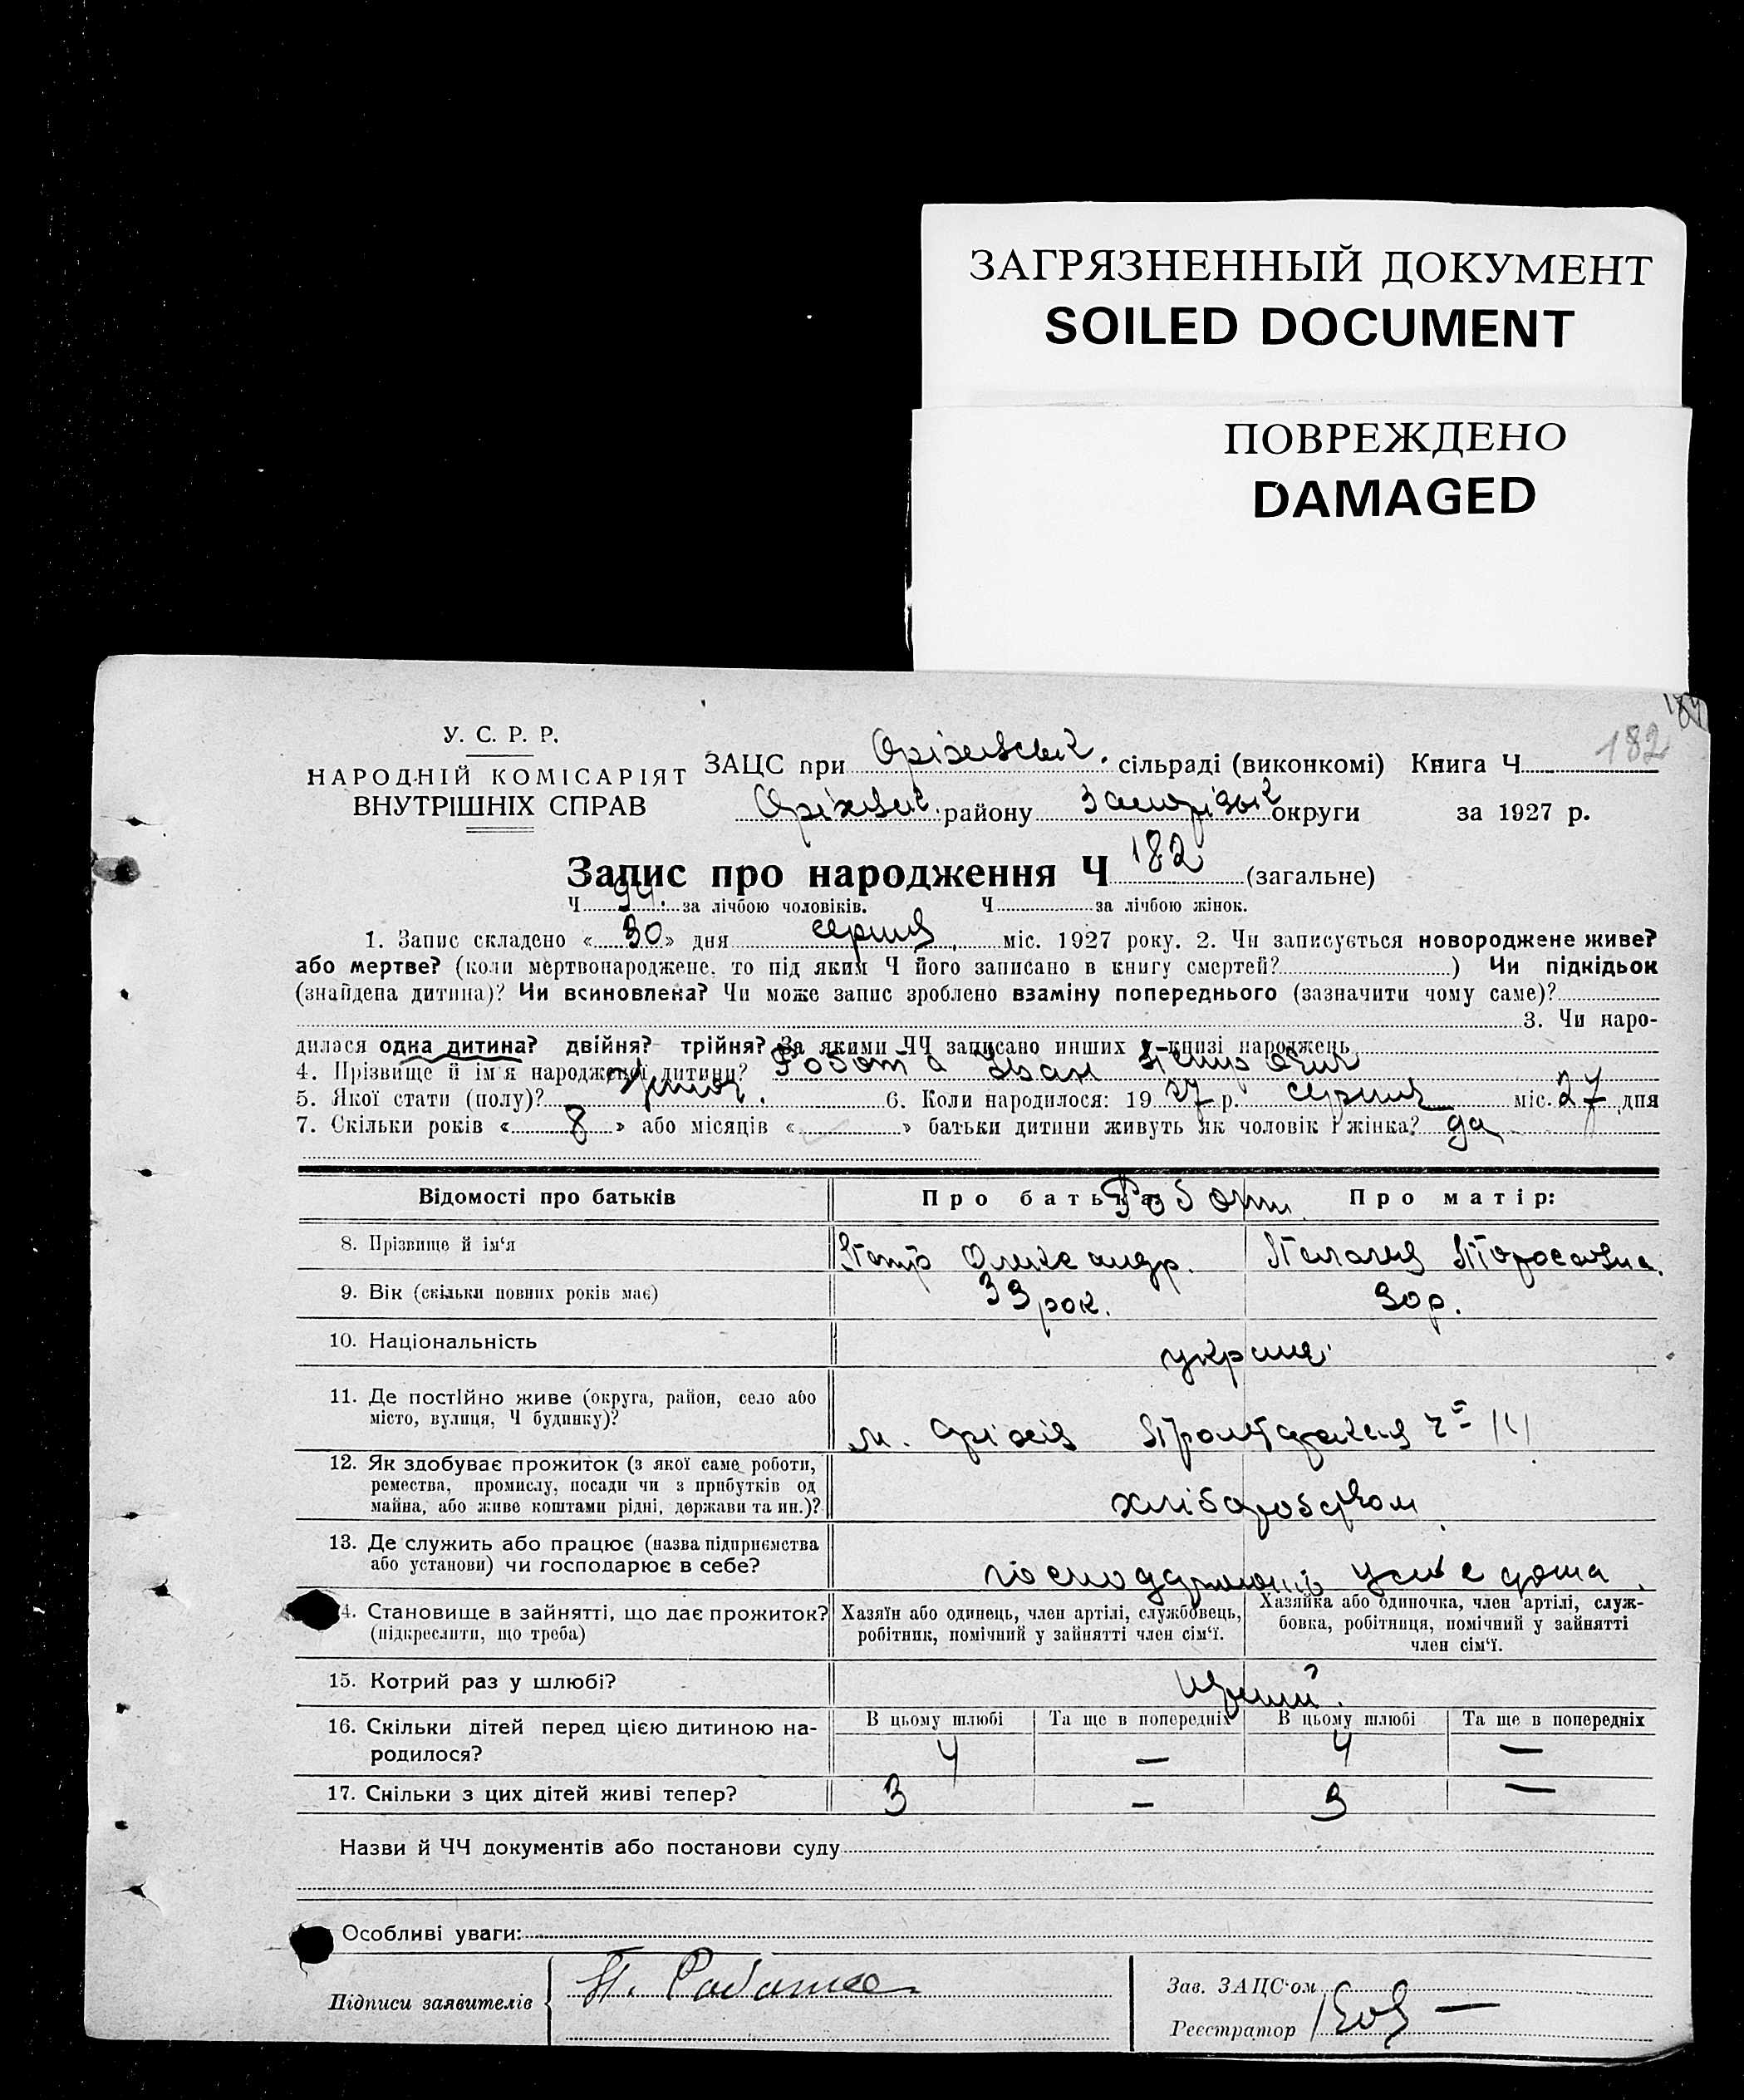 ЗАГРЯЗНЕННЫЙ ДОКУМЕНТ
SOILED DOCUMENT
ПОВРЕЖДЕНО
DAMAGED
182
У. С. Р. Р.
НАРОДНІЙ КОМІСАРІЯТ
ВНУТРІШНІХ СПРАВ
ЗАЦС при Оріхівськ. сільраді (виконкомі) Книга Ч
Оріхівськ. району Запорізьк округи за 1927 р.
Запис про народження Ч 182 (загальне)
Ч 94. за лічбою чоловіків. Ч за лічбою жінок.
1. Запис складено «30» дня серпня міс. 1927 року. 2. Чи записується новороджене живе?
або мертве? (коли мертвонароджене, то під яким Ч його записано в книгу смертей? ) Чи підкідьок
(знайдена дитина)? Чи всиновлена? Чи може запис зроблено взаміну попереднього (зазначити чому саме)?
3. Чи наро-
дилася одна дитина? двійня? трійня? За якими ЧЧ записано инших в книзі народжень
4. Прізвище й ім'я народженої дитини? Робота Іван Петрович
5. Якої стати (полу)? 6. Коли народилося: 1927 р. серпня міс. 27 дня
7. Скільки років «8» або місяців « » батьки дитини живуть як чоловік і жінка? да
Відомості про батьків
Про батька: Про матір:
Робот.
8. Прізвище й ім'я
Петро Олександр. Пелагия Тарасовна.
9. Вік (скільки повних років має)
33 рок. 30 р.
10. Національність
україн.
11. Де постійно живе (округа, район, село або
місто, вулиця, Ч будинку)?
м. Оріхів
12. Як здобуває прожиток (з якої саме роботи,
ремества, промислу, посади чи з прибутків од
майна, або живе коштами рідні, держави та ин.)?
хліборобством
13. Де служить або працює (назва підприємства
або установи) чи господарює в себе?
у себе дома.
14. Становище в зайнятті, що дає прожиток?
(підкреслити, що треба)
Хазяїн або одинець, член артілі, службовець,
робітник, помічний у зайнятті член сім'ї.
Хазяйка або одиночка, член артілі, служ-
бовка, робітниця, помічний у зайнятті
член сім'ї.
15. Котрий раз у шлюбі?
перший.
16. Скільки дітей перед цією дитиною на-
родилося?
В цьому шлюбі Та ще в попередніх В цьому шлюбі Та ще в попередніх
4 — 4 —
17. Скільки з цих дітей живі тепер?
3 — 3 —
Назви й ЧЧ документів або постанови суду
Особливі уваги:
Підписи заявителів
П. Работа
Зав. ЗАЦС'ом
Реєстратор